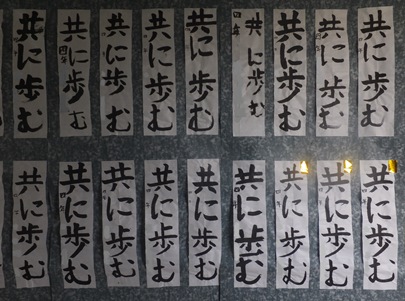 共に歩む
共に歩む
共に歩む
共に歩む
四年
共に歩む
共に歩む
共に歩む
共に歩む
共に歩む
共に歩む
共に歩む
共に歩む
共に歩む
共に歩む
共に歩む
共に歩む
共に歩む
共に歩む